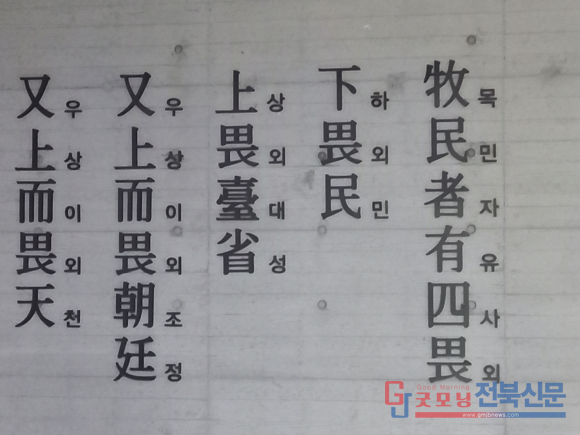 牧民者有四畏
목민자유사외
下畏民
하외민
上畏臺省
상외대성
又上而畏朝廷
우상이외조정
又上而畏天
우상이외천
Good Morning
굿모닝전북신문
www.gmjbnews.com